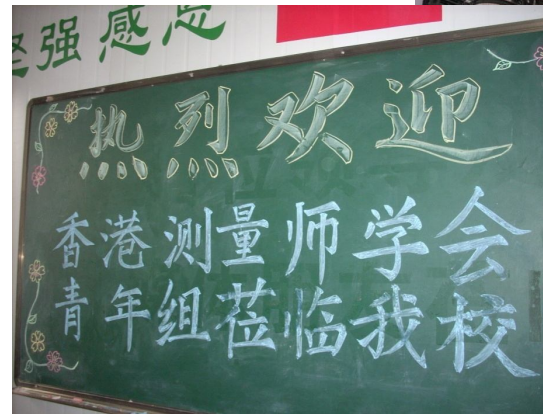 坚强 感恩
热烈欢迎
香港测量师学会
青年组莅临我校